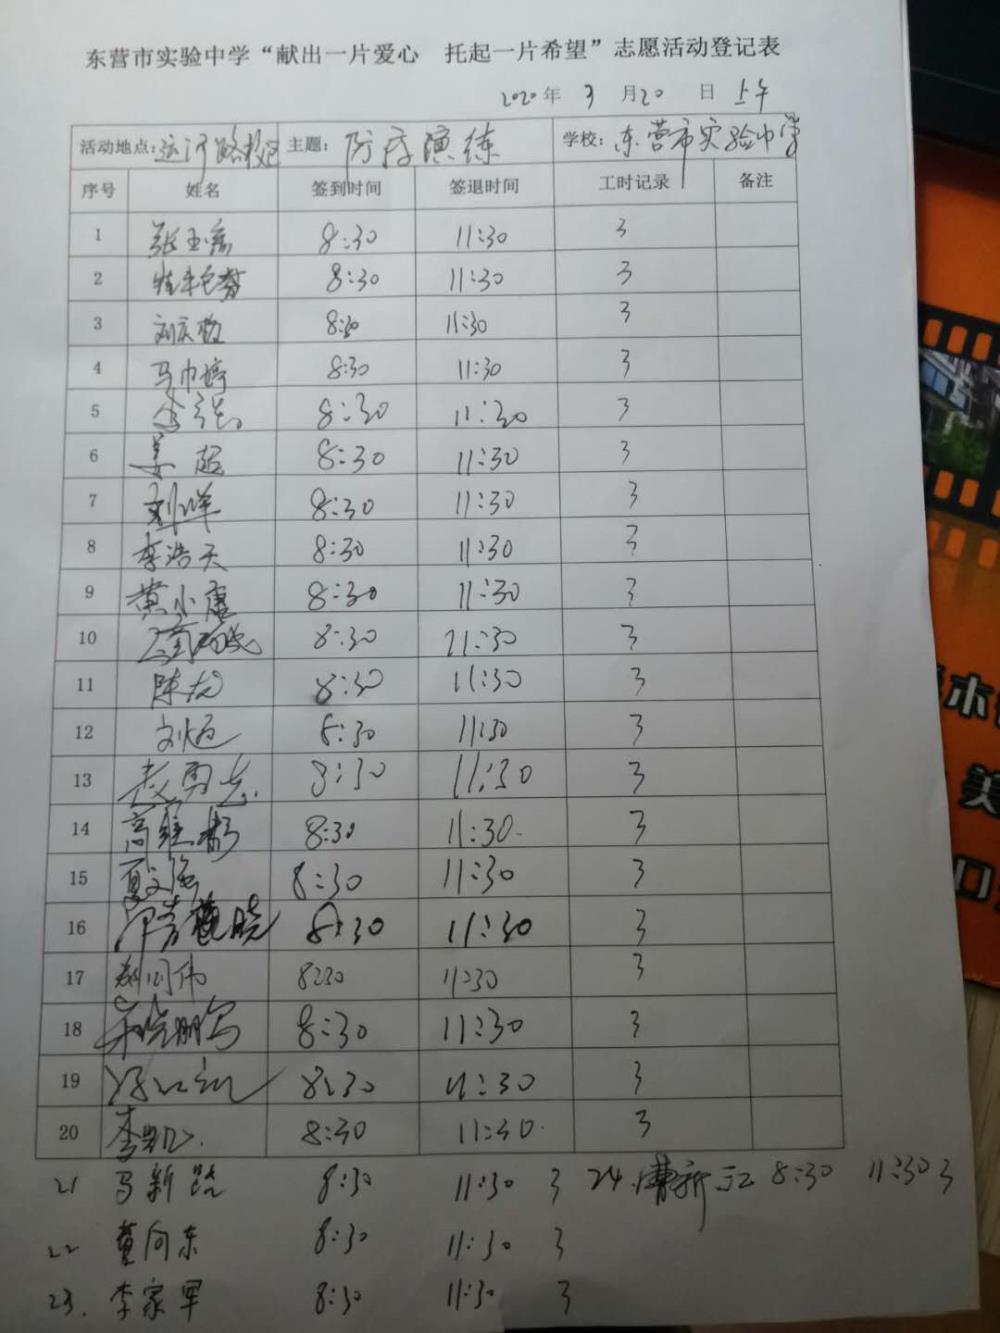 东营市实验中学“献出一片爱心 托起一片希望”志愿活动登记表
2020年 3 月20 日 上午
活动地点:运河路校区 主题: 防疫演练 学校: 东营市实验中学
序号 姓名 签到时间 签退时间 工时记录 备注
1 张玉 8:30 11:30 3
2 8:30 11:30 3
3 刘庆 8:30 11:30 3
4 马巾 8:30 11:30 3
5 李强 8:30 11:30 3
6 姜超 8:30 11:30 3
7 刘洋 8:30 11:30 3
8 李浩天 8:30 11:30 3
9 黄小唐 8:30 11:30 3
10 8:30 11:30 3
11 陈龙 8:30 11:30 3
12 刘恒 8:30 11:30 3
13 赵勇志 8:30 11:30 3
14 高维彬 8:30 11:30 3
15 夏文 8:30 11:30 3
16 晓 8:30 11:30 3
17 伟 8:30 11:30 3
18 宋晓鹏 8:30 11:30 3
19 8:30 11:30 3
20 李凯 8:30 11:30 3
21 马新路 8:30 11:30 3 24. 曹新江 8:30 11:30 3
22 董向东 8:30 11:30 3
23. 李家军 8:30 11:30 3
木
美
口